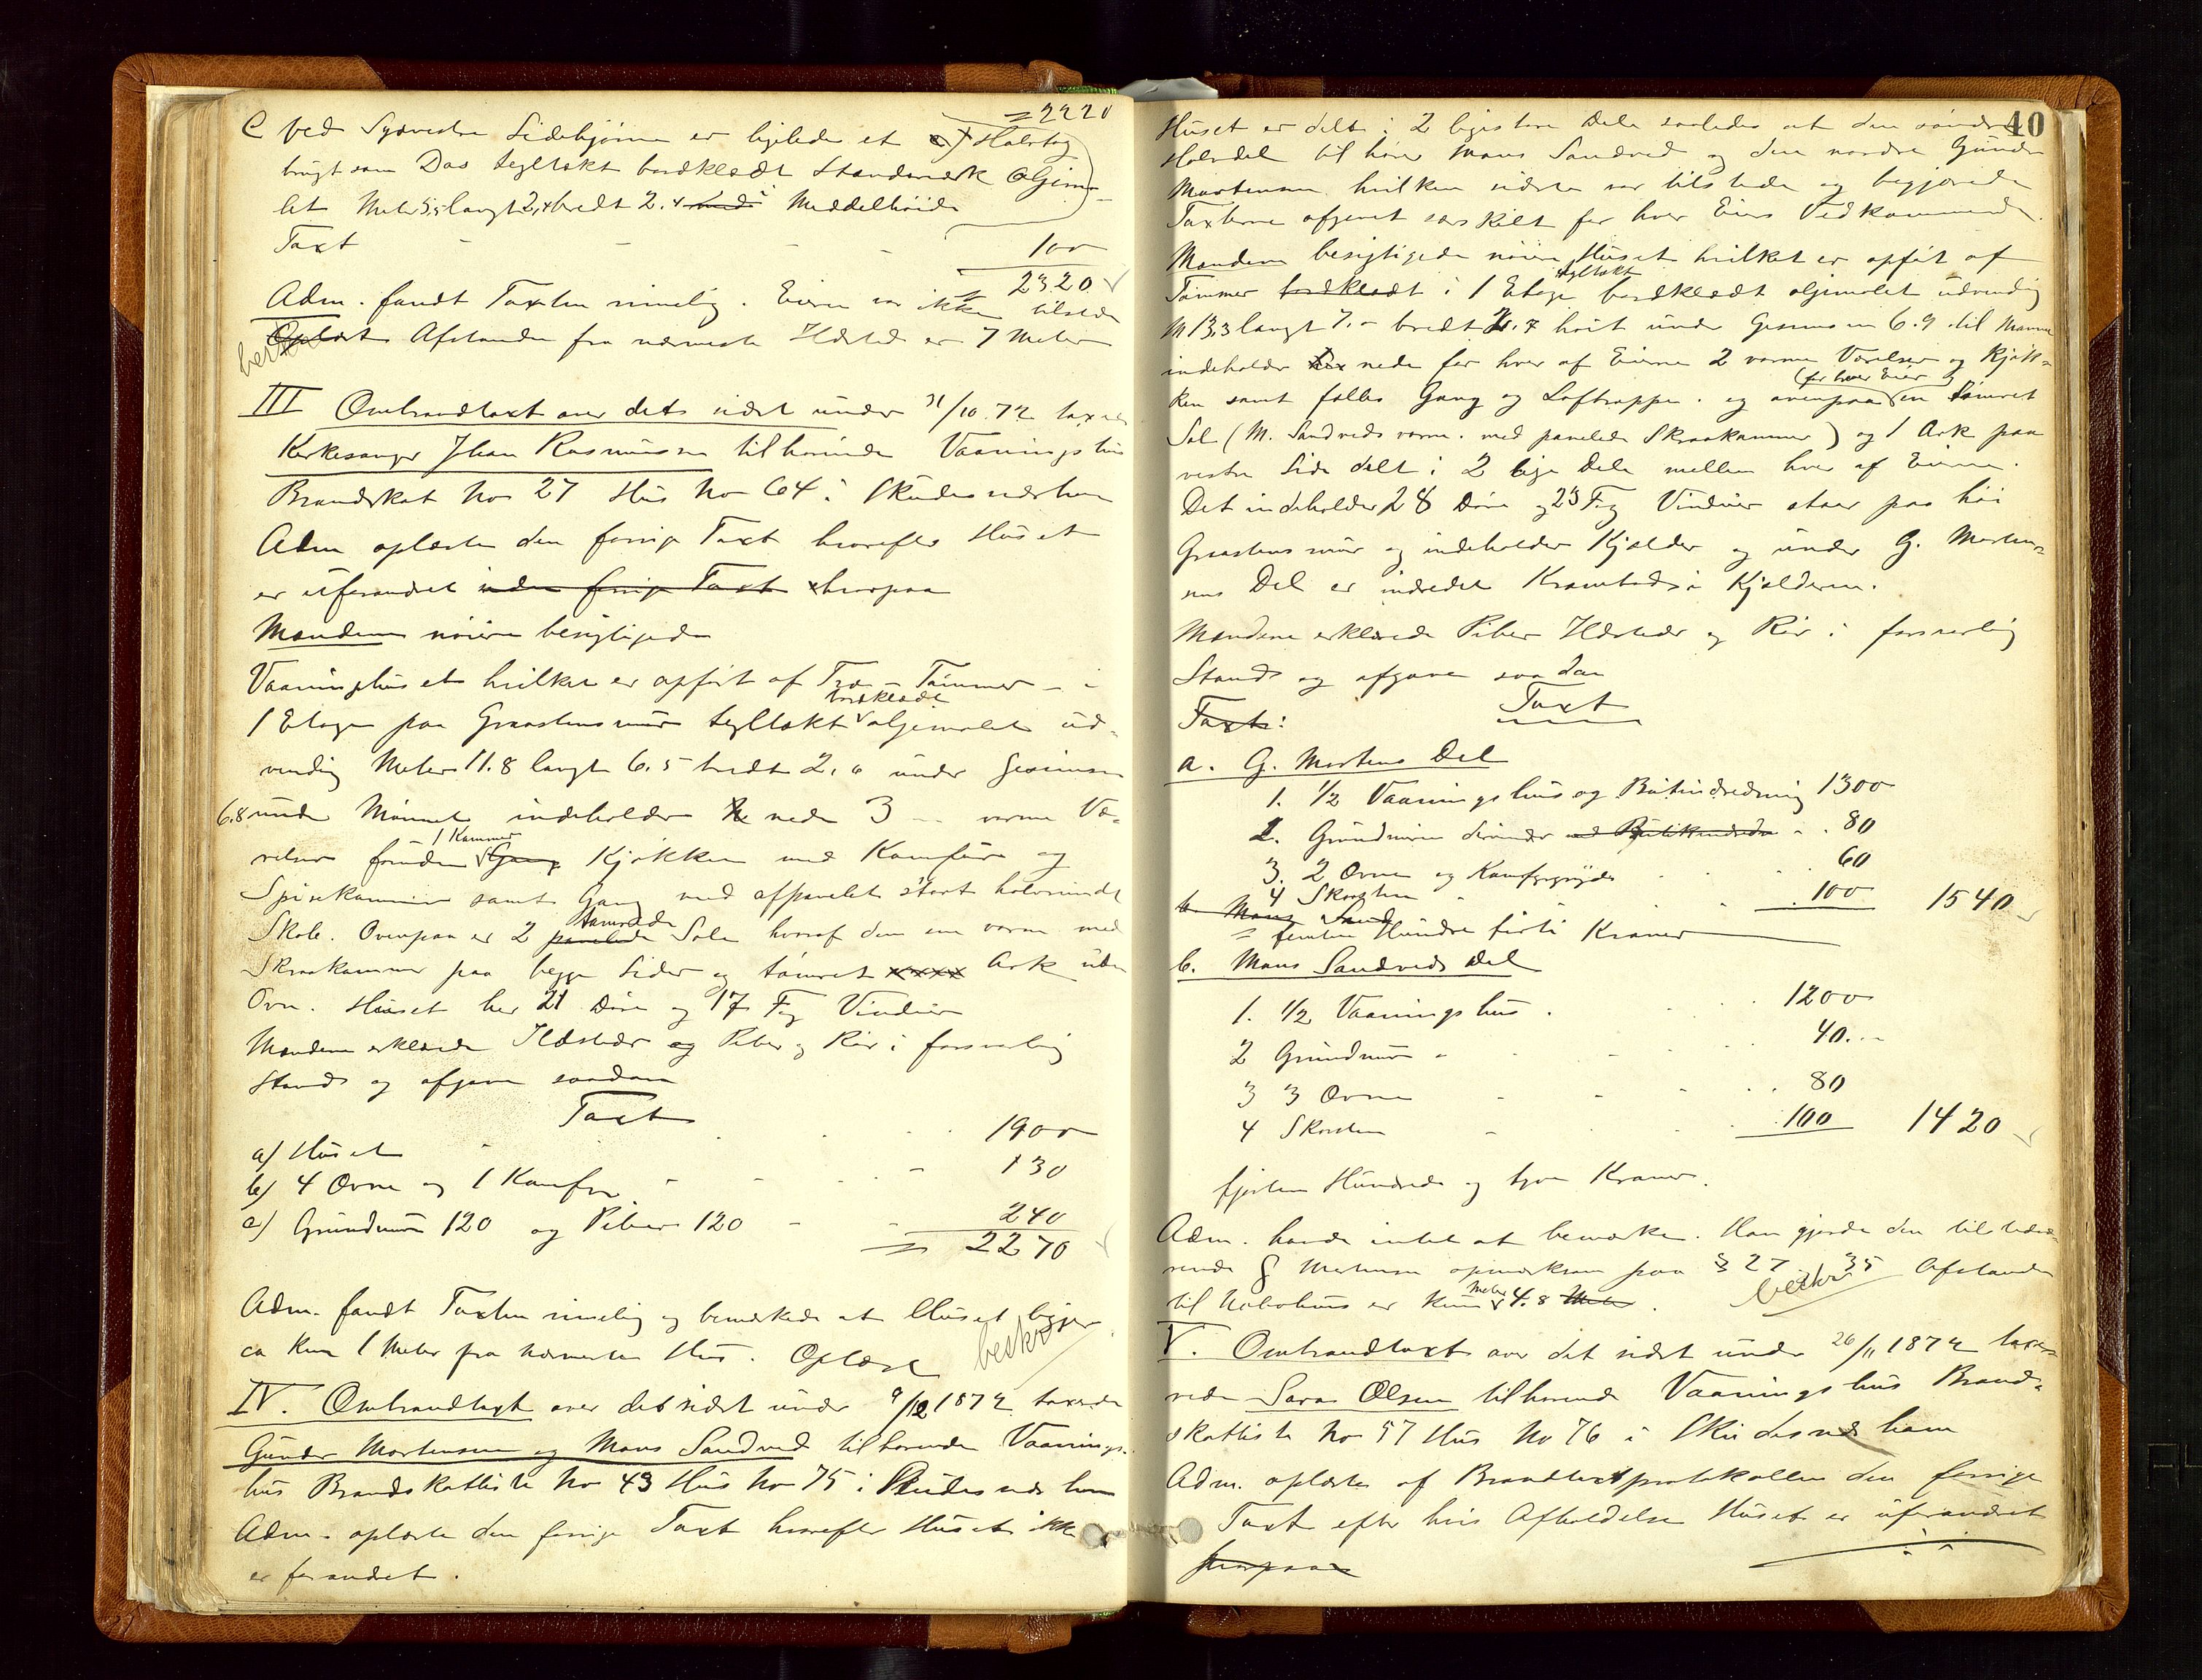 = 2220
C Ved Sydvestre Sidehjørne er ligeledes et Halvtag
brugt som Das tegltækt bordklædt Standværk oljema-
let Meter 5,5 langt 2,4 bredt 2.4 Middelhøide
Taxt - - - - 100
= 2320
Adm. fandt Taxten rimelig. Eieren var ikke tilstede
Oplæst Afstanden fra nærmeste Ildsted er 7 Meter
beskr
III Ombrandtaxt over det sidst under 31/10 72 taxerede
Kirkesanger Johan Rasmussen tilhørende Vaaningshus
Brandskat No 27 Hus No 64 i Skudesneshavn
Adm oplæste den forrige Taxt hvorefter Huset
er uforandret siden forrige Taxt hvorpaa
Mændene nøiere besigtigede
Vaaningshuset hvilket er opført af Træ - Tømmer - i
bordklædt
1 Etage paa Graastensmur tegltækt oljemalet ud-
vendig Meter 11.8 langt 6.5 bredt 2.6 under Gesimsen
6.8 under Mønnet indeholder nede 3 varme Væ-
1 Kammer
relser foruden Gang Kjøkken med Komfur og
Spisekammer samt Gang med afpanelet stort halvrundt
tømrede
Skab. Ovenpaa er 2 panelede Sale hvoraf den ene varm med
Skraakammer paa begge Sider og tømret xxxx Ark uden
Ovn. Huset har 21 Døre og 17 Fag Vinduer
Mændene erklærede Ildsteder og Piber og Rør i forsvarlig
Stand og afgave saadan
Taxt
a) Huset - - - 1900
b) 4 Ovne og 1 Komfur - - - 130
c) Grundmur 120 og Piber 120 - - 240
= 2270
Adm. fandt Taxten rimelig og bemærkede at Huset ligger
ca kun 1 Meter fra nærmeste Hus. Oplæst
beskr
IV. Ombrandtaxt over det sidst under 9/12 1872 taxerede
Gunder Mortensen og Mons Sandved tilhørende Vaanings-
hus Brandskatliste No 43 Hus No 75 i Skudesneshavn
Adm. oplæste den forrige Taxt hvorefter Huset ikke
er forandret.
40
Huset er delt i 2 ligestore Dele saaledes at den søndre
Halvdel tilhører Mons Sandved og den nordre Gunder
Mortensen hvilken sidste var tilstede og begjærede
Taxterne afgivet særskilt for hver Eiers Vedkommende.
Mændene besigtigede nøiere Huset hvilket er opført af
tegltækt
Tømmer bordklædt i 1 Etage bordklædt oljemalet udvendig
M 13,3 langt 7.- bredt 2.7 høit under Gesimsen 6.9 til Mønne
indeholder nede for hver af Eierne 2 varme Værelser og Kjøk-
(for hver Eier
ken samt fælles Gang og Loftrappe. og ovenpaa en tømret
Sal (M. Sandveds varm. med panelede Skraakammer) og 1 Ark paa
vestre Side delt i 2 lige Dele mellem hver af Eierne.
Det indeholder 28 Døre og 23 Fag Vinduer staar paa høi
Graastensmur og indeholder Kjælder og under G. Morten-
sens Del er indredet Krambod i Kjælderen.
Mændene erklærede Piber Ildsteder og Rør i forsvarlig
Stand og afgave saadan
Taxt: Taxt
a. G. Mortens Del
1. 1/2 Vaaningshus og Butindredning 1300
2. Grundmuren derunder - . 80
3. 2 Ovne og Komfyrgryde . . . 60
4 Skorsten . . . 100 1540
b. Mons Sand
= femten Hundre førti Kroner
b. Mons Sandveds Del
1. 1/2 Vaaningshus . . . 1200
2 Grundmur - - - . 40. --
3 3 Ovne - - - . 80
4 Skorsten - - . 100 1420
fjorten Hundrede og tyve Kroner.
Adm. havde intet at bemærke. Han gjorde den tilstede-
rende G Mortensen opmærksom paa § 27 35 Afstanden
Meter
til Nabohus er kun 4.8 Meter. beskr
V. Ombrandtaxt over det sidst under 26/11 1872 taxe-
rede Saras Olsen tilhørende Vaaningshus Brand-
skatliste No 57 Hus No 76 i Skudesneshavn
Adm. oplæste af Brandtaxtprotokollen den forrige
Taxt efter hvis Afholdelse Huset er uforandret
hvorpaa